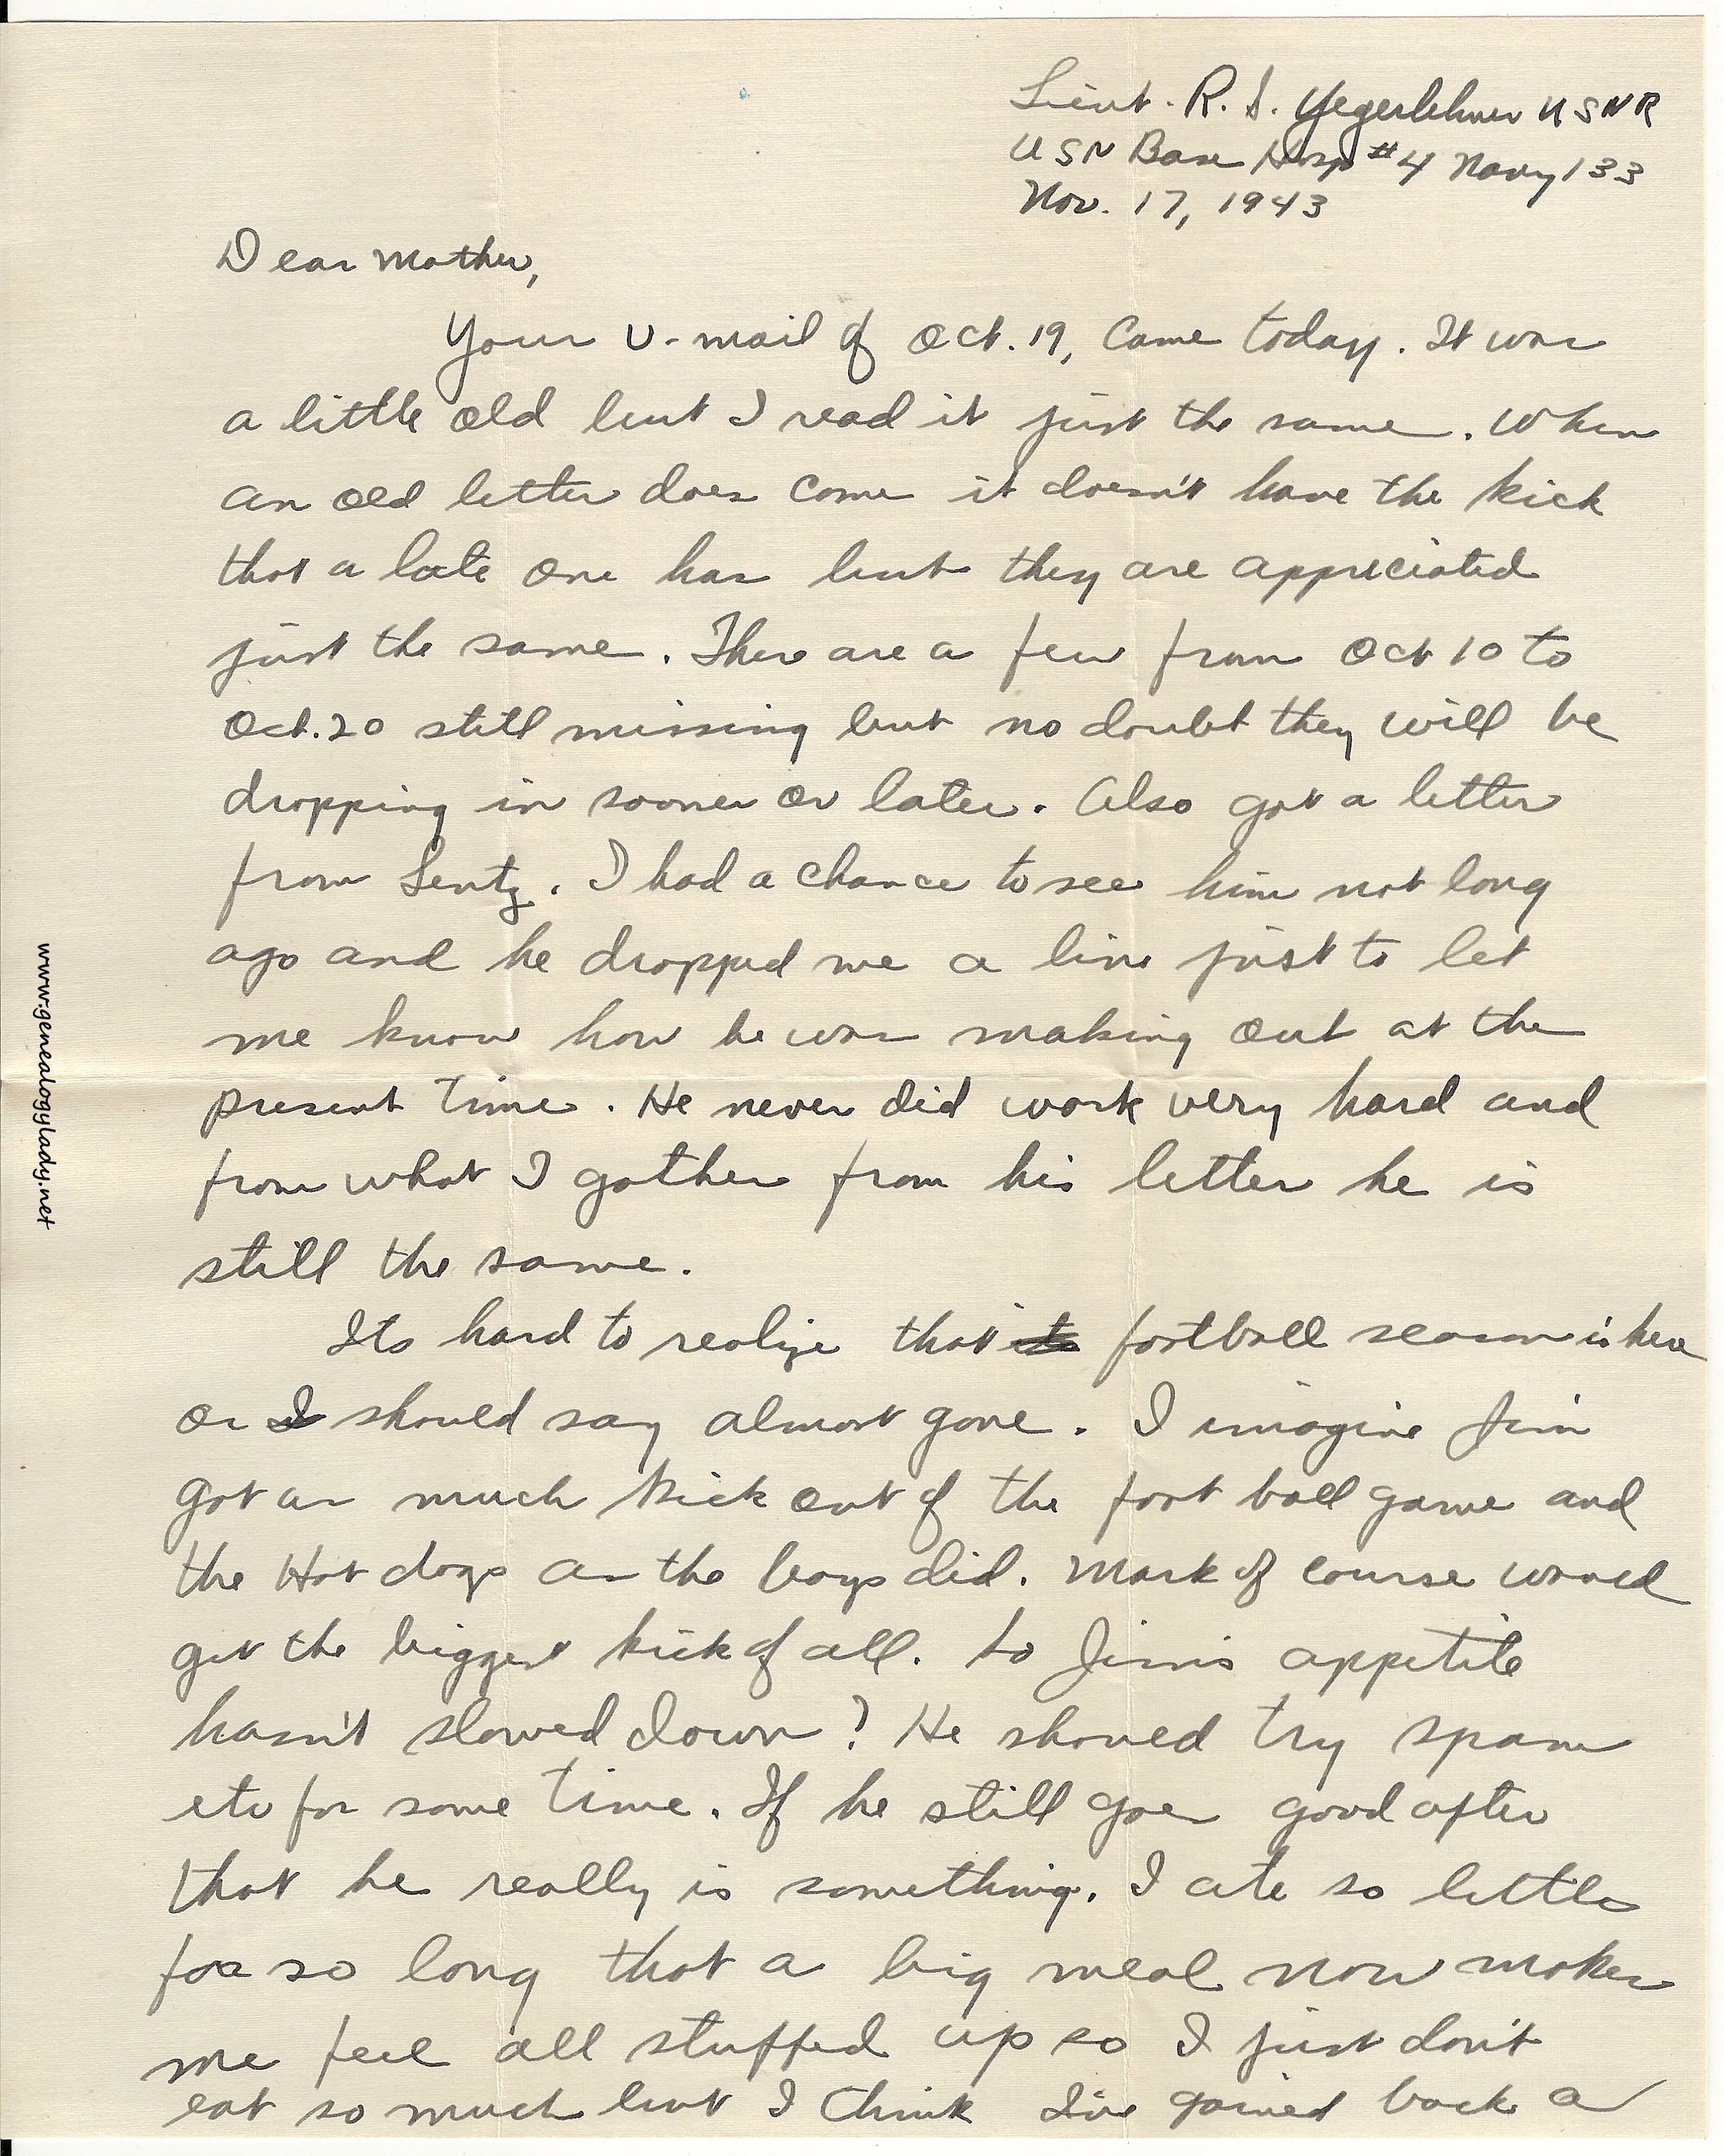 Lieut. R. S. Yegerlehner USNR
USN Base Hosp #4 Navy 133
Nov. 17, 1943
Dear Mother,
Your V-mail of Oct. 19, came today. It was
a little old but I read it just the same. When
an old letter does come it doesn't have the kick
that a late one has but they are appreciated
just the same. There are a few from Oct 10 to
Oct. 20 still missing but no doubt they will be
dropping in sooner or later. Also got a letter
from Lentz. I had a chance to see him not long
ago and he dropped me a line just to let
me know how he was making out at the
present time. He never did work very hard and
from what I gather from his letter he is
still the same.
Its hard to realize that its football season is here
or I should say almost gone. I imagine Jim
got as much kick out of the foot ball game and
the Hot dogs as the boys did. Mark of course would
get the biggest kick of all. So Jim's appetite
hasn't slowed down? He should try spam
etc for some time. If he still goes good after
that he really is something. I ate so little
for so long that a big meal now makes
me feel all stuffed up so I just don't
eat so much but I think I've gained back a
www.genealogylady.net